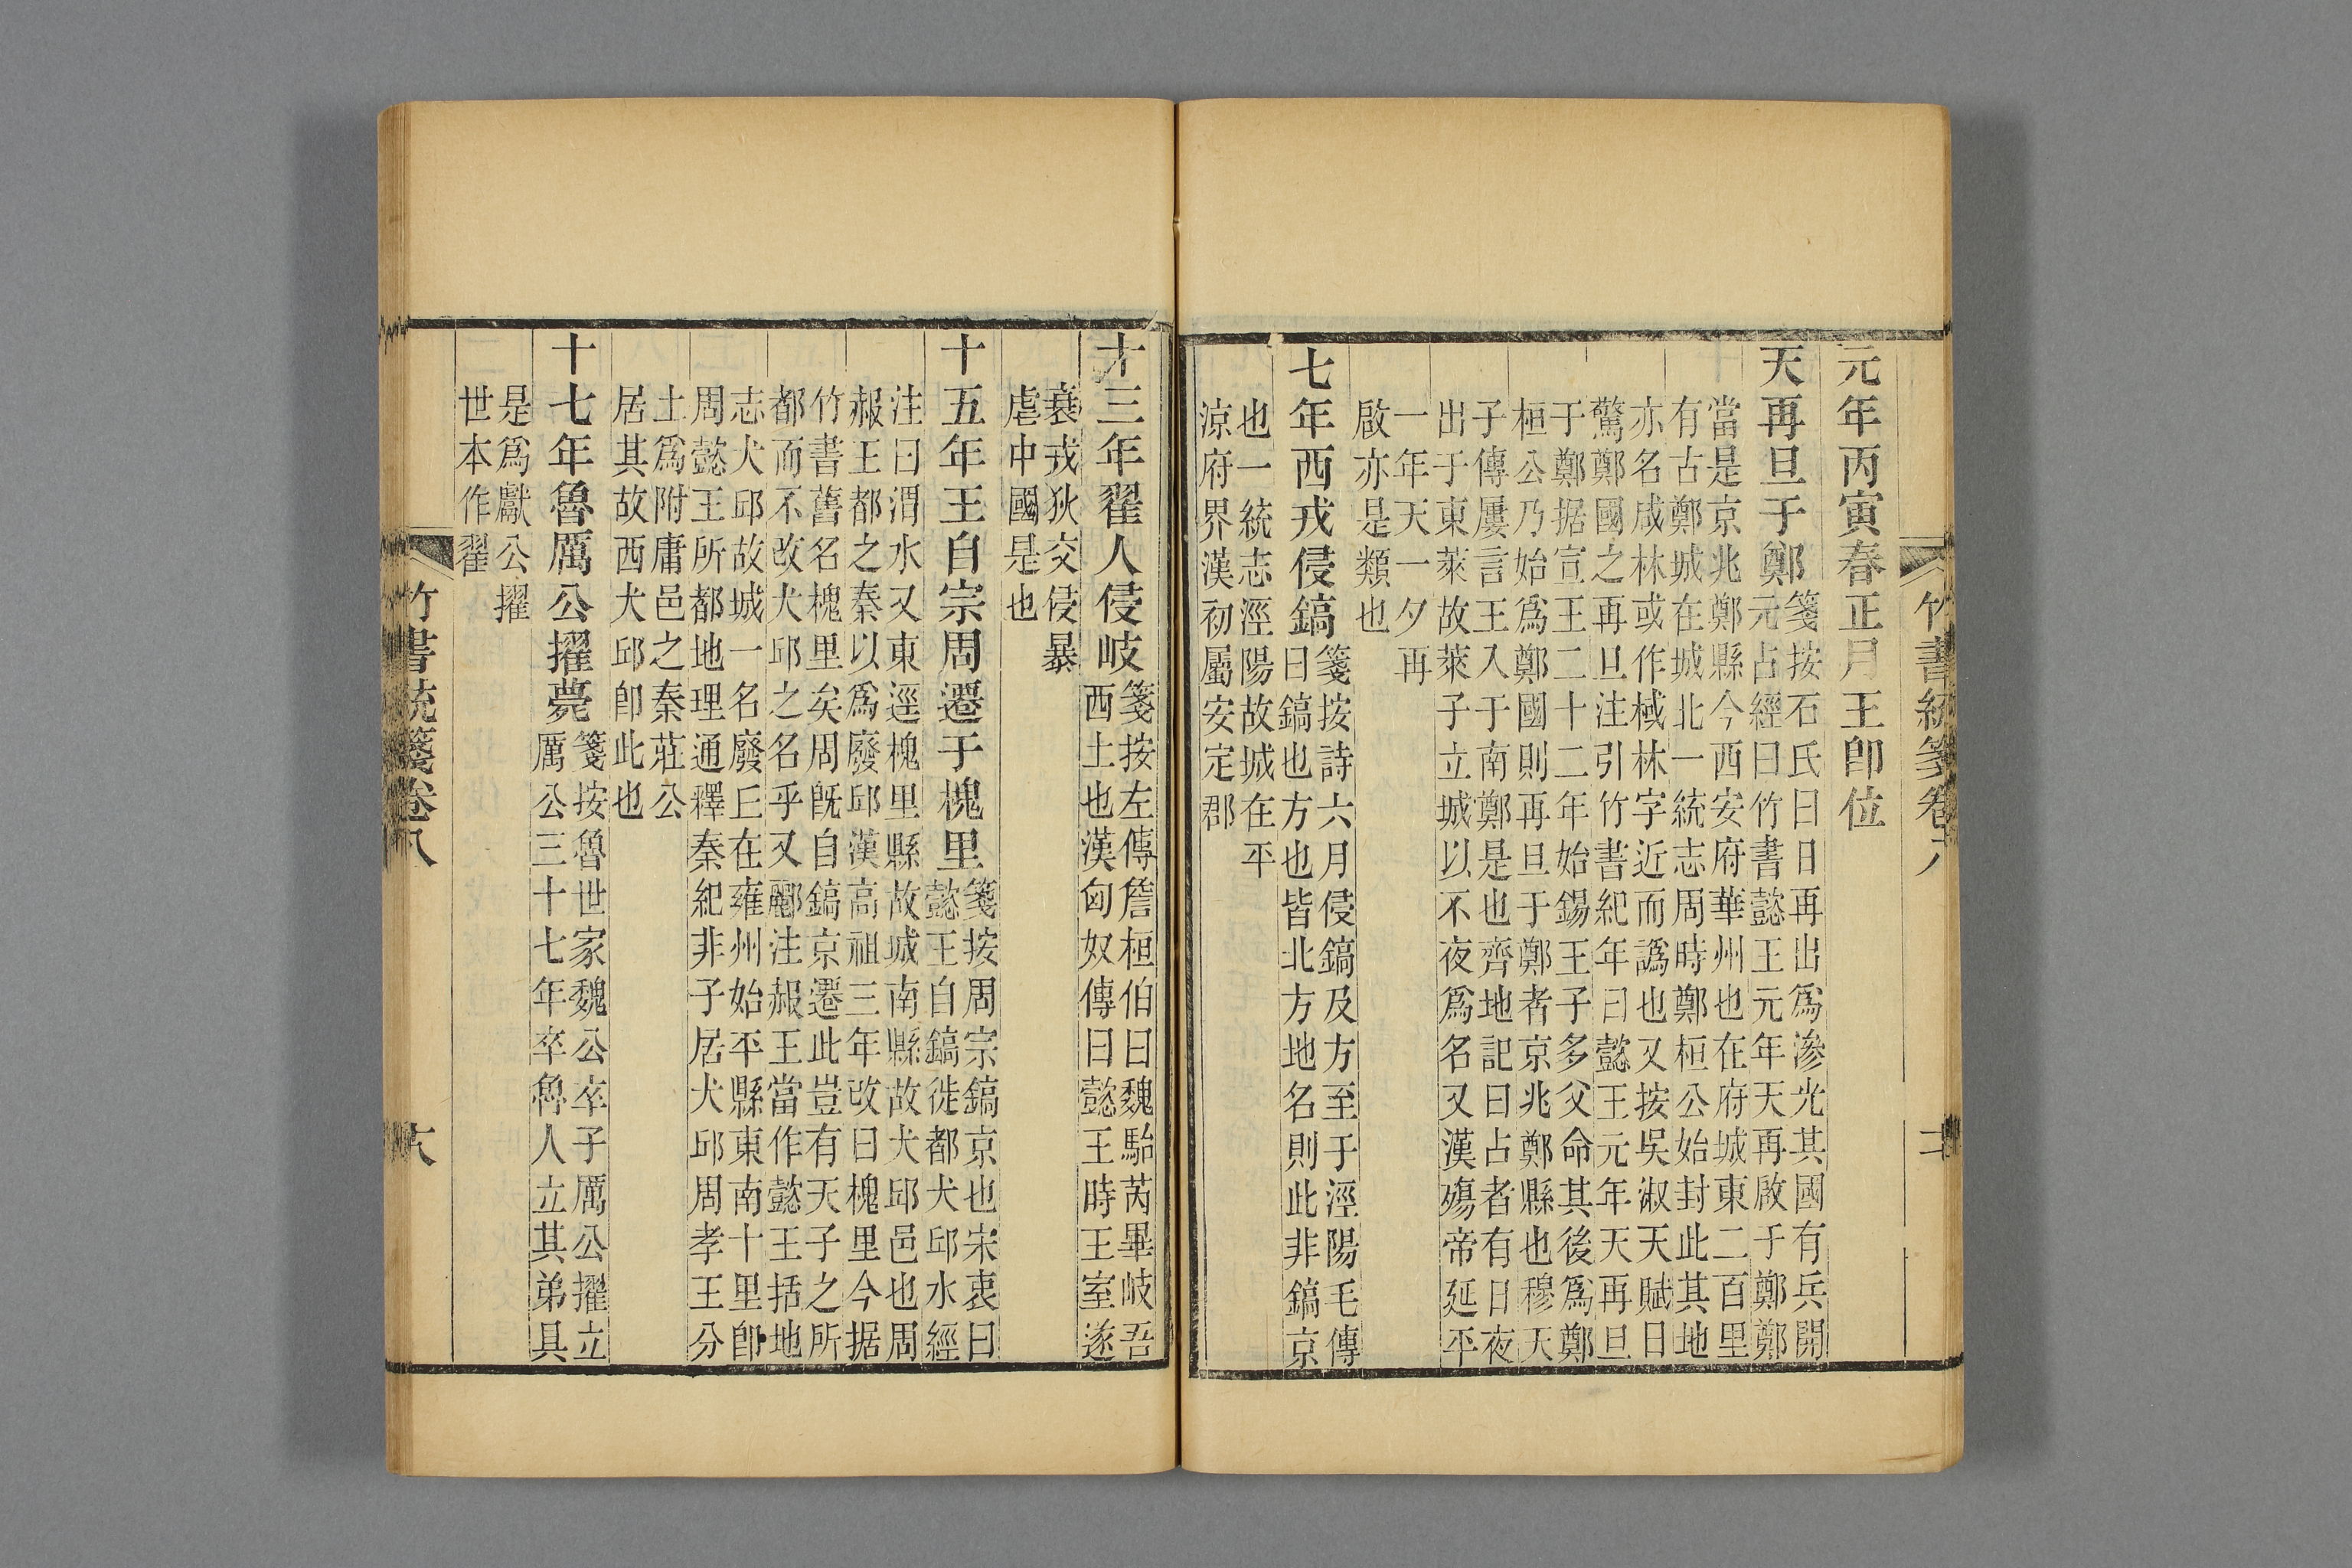 竹書統箋卷八
元年丙寅春正月王卽位
天再旦于鄭
箋按石氏曰日再出爲滲光其國有兵開
元占經曰竹書懿王元年天再啟于鄭鄭
當是京兆鄭縣今西安府華州也在府城東二百里
有古鄭城在城北一統志周時鄭桓公始封此其地
亦名咸林或作棫林字近而譌也又按吳淑天賦日
驚鄭國之再旦注引竹書紀年曰懿王元年天再旦
于鄭据宣王二十二年始錫王子多父命其後爲鄭
桓公乃始爲鄭國則再旦于鄭者京兆鄭縣也穆天
子傳屢言王入于南鄭是也齊地記曰占者有日夜
出于東萊故萊子立城以不夜爲名又漢殤帝延平
一年天一夕再
啟亦是類也
七年西戎侵鎬
箋按詩六月侵鎬及方至于涇陽毛傳
曰鎬也方也皆北方地名則此非鎬京
也一統志涇陽故城在平
涼府界漢初屬安定郡
十三年翟人侵岐
箋按左傳詹桓伯曰魏駘芮畢岐吾
西土也漢匈奴傳曰懿王時王室遂
衰戎狄交侵暴
虐中國是也
十五年王自宗周遷于槐里
箋按周宗鎬京也宋衷曰
懿王自鎬徙都犬邱水經
注曰渭水又東逕槐里縣故城南縣故犬邱邑也周
赧王都之秦以爲廢邱漢高祖三年改曰槐里今据
竹書舊名槐里矣周旣自鎬京遷此豈有天子之所
都而不改犬邱之名乎又酈注赧王當作懿王括地
志犬邱故城一名廢丘在雍州始平縣東南十里卽
周懿王所都地理通釋秦紀非子居犬邱周孝王分
土爲附庸邑之秦莊公
居其故西犬邱卽此也
十七年魯厲公擢薨
箋按魯世家魏公卒子厲公擢立
厲公三十七年卒魯人立其弟具
是爲獻公擢
世本作翟
竹書統箋卷八